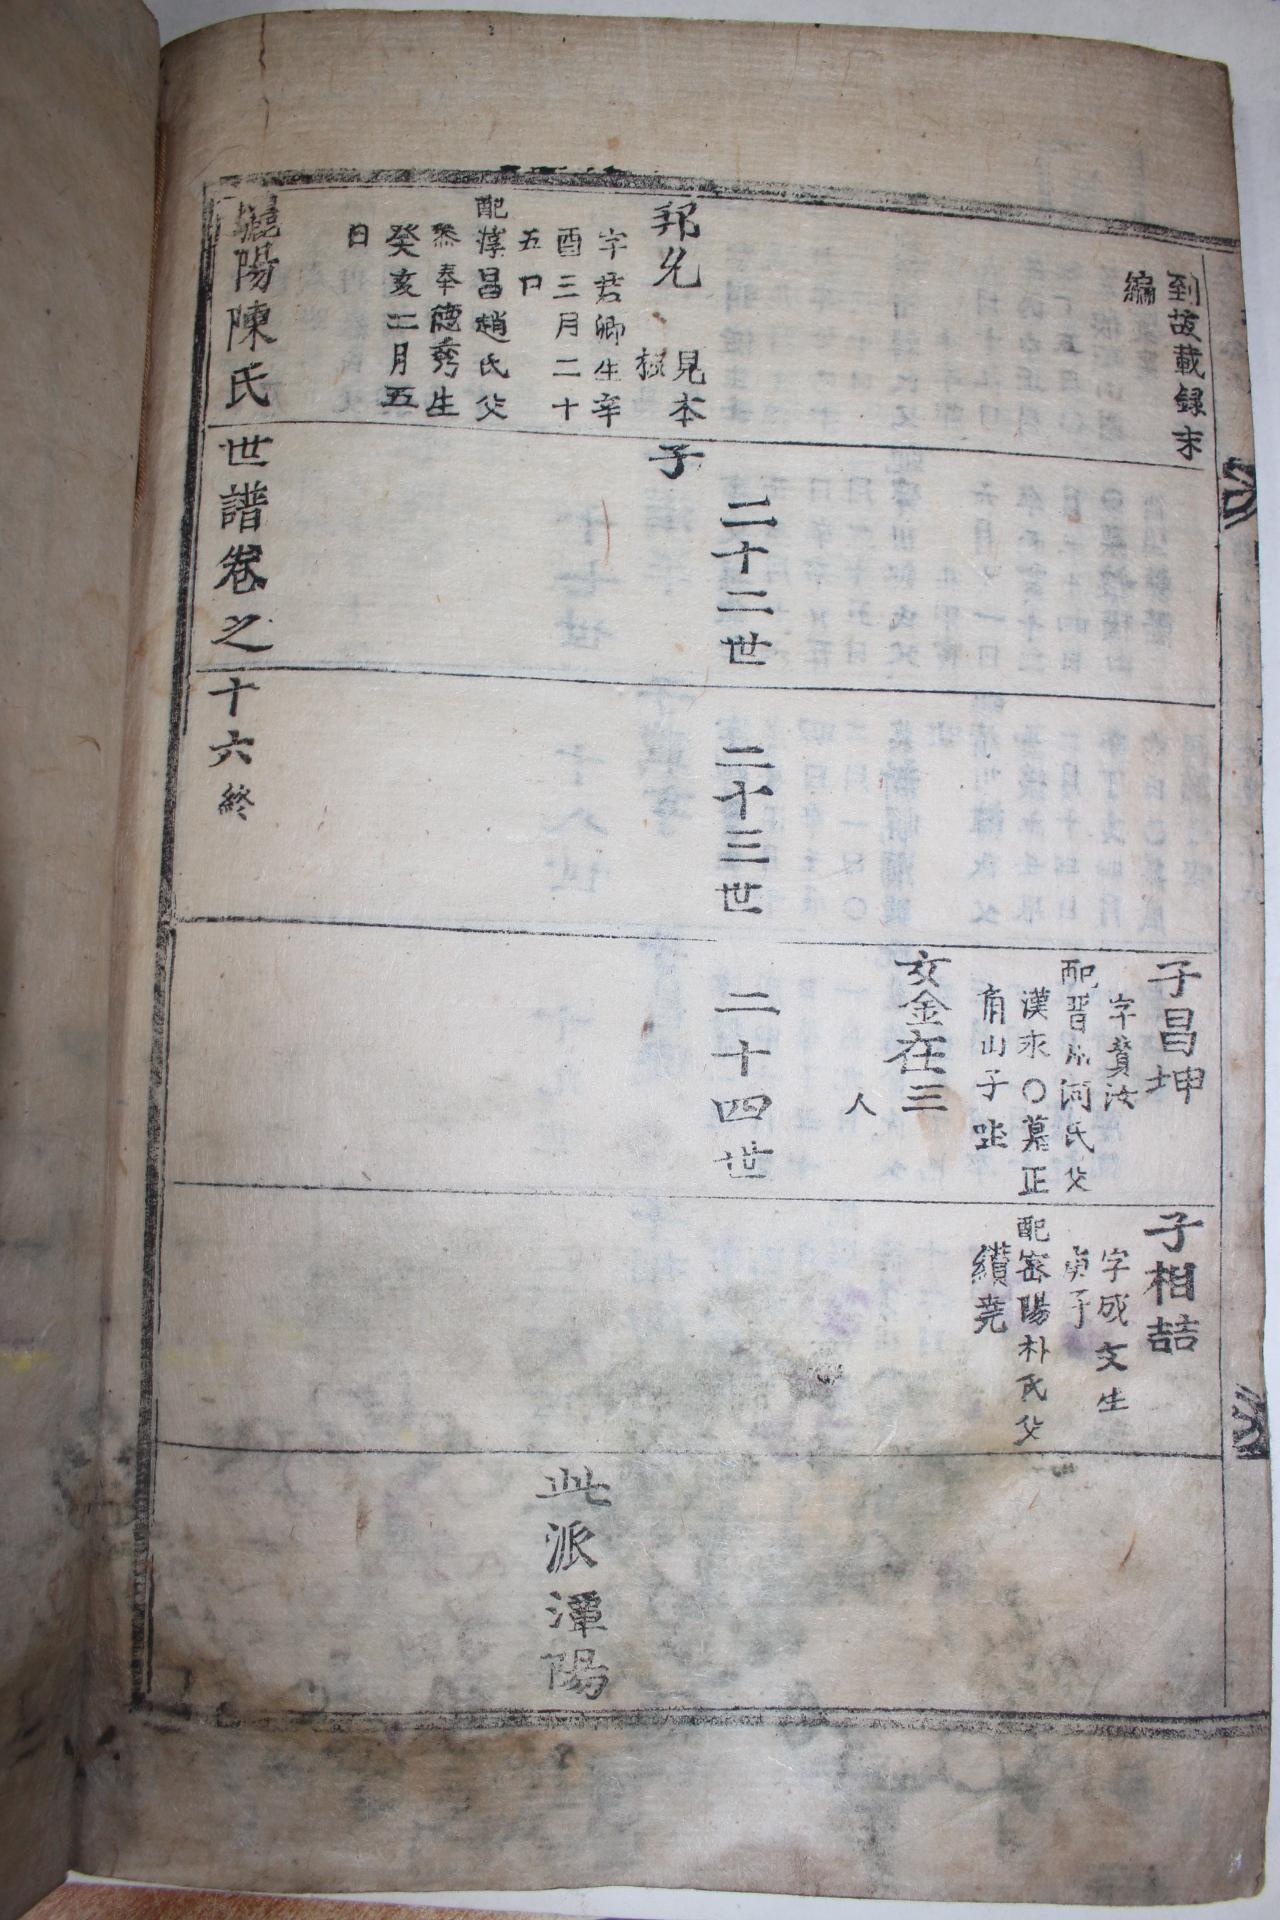 到故載錄末
編
子昌坤
字贊汝
配晋州河氏父
漢永〇墓正
角山子坐
女金在三
人
子相喆
字成文生
庚子
配密陽朴氏父
纘堯
二十二世
二十三世
二十四世
邦允
見本
子
字君卿生辛
酉三月二十
五日
配淳昌趙氏父
叅奉德秀生
癸亥二月五
日
此派潭陽
陽陳氏世譜卷之十六終